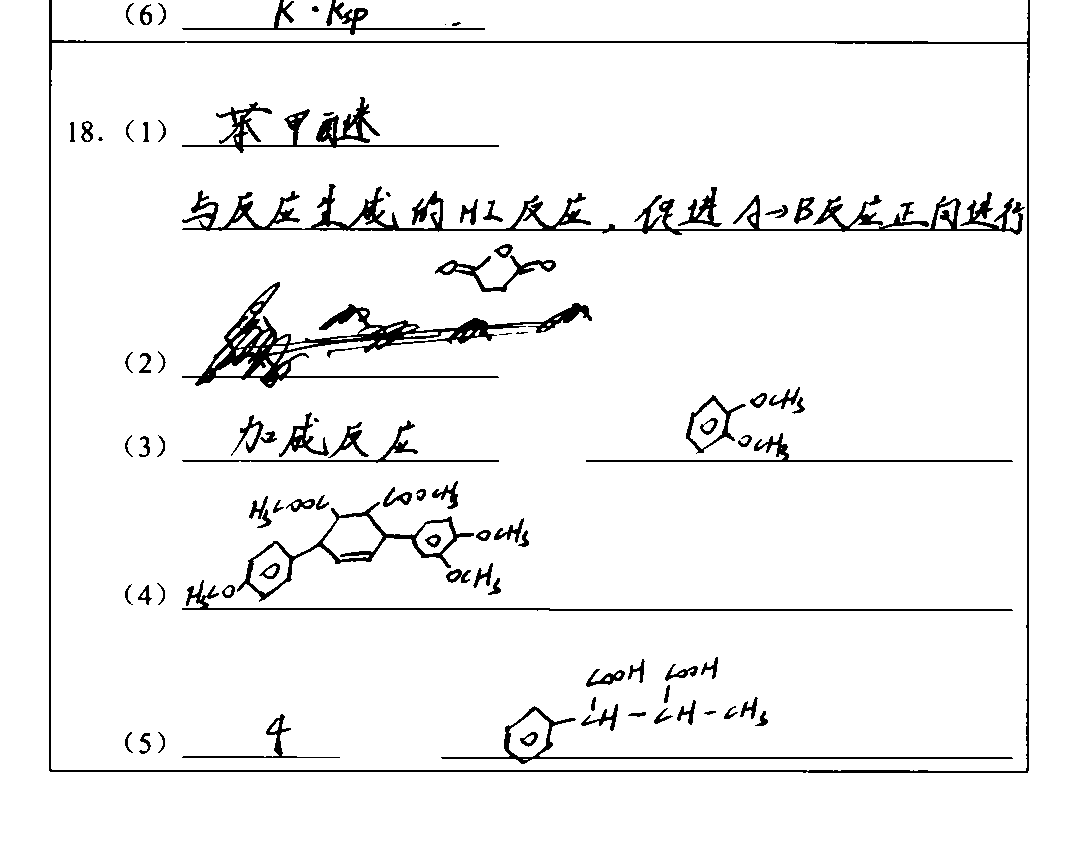 （6） K·Ksp
18.（1） 苯甲醚
与反应生成的HI反应，促进A→B反应正向进行
O O O
（2）
（3） 加成反应 OCH3 OCH3
H3COOC COOCH3
OCH3
（4） H3CO OCH3
COOH COOH
CH-CH-CH3
（5） 4